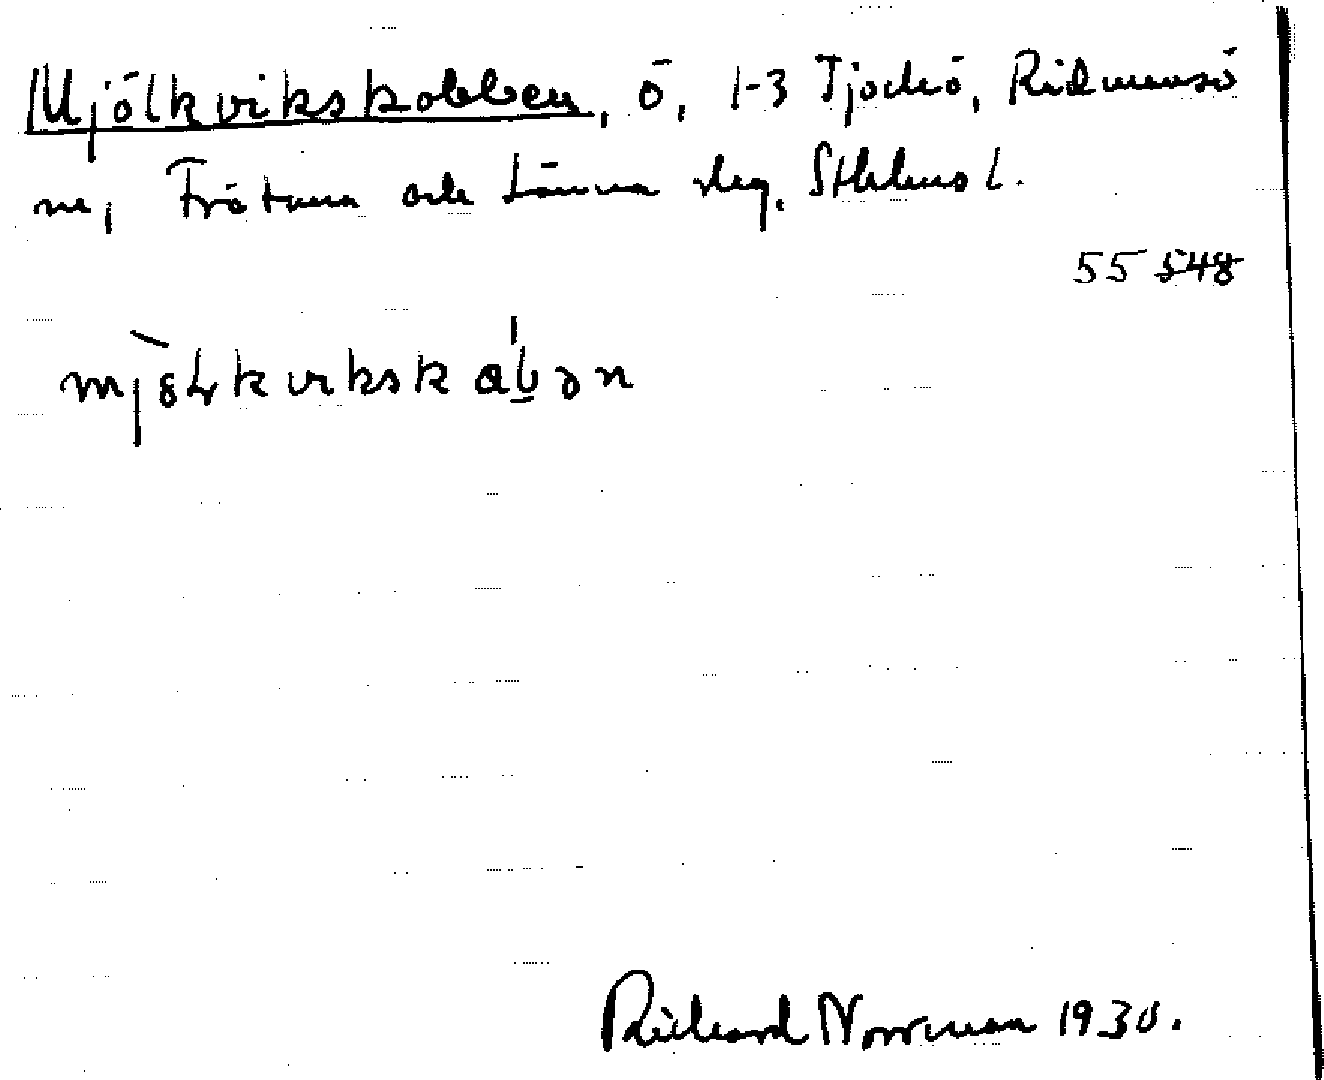 Mjölkvikskobben, ö, 1-3 Tjockö, Rådmansö
sn, Frötuna och Länna skg, Sthlms l.
55 548
mjölkvikskabən
Richard Norrman 1930.